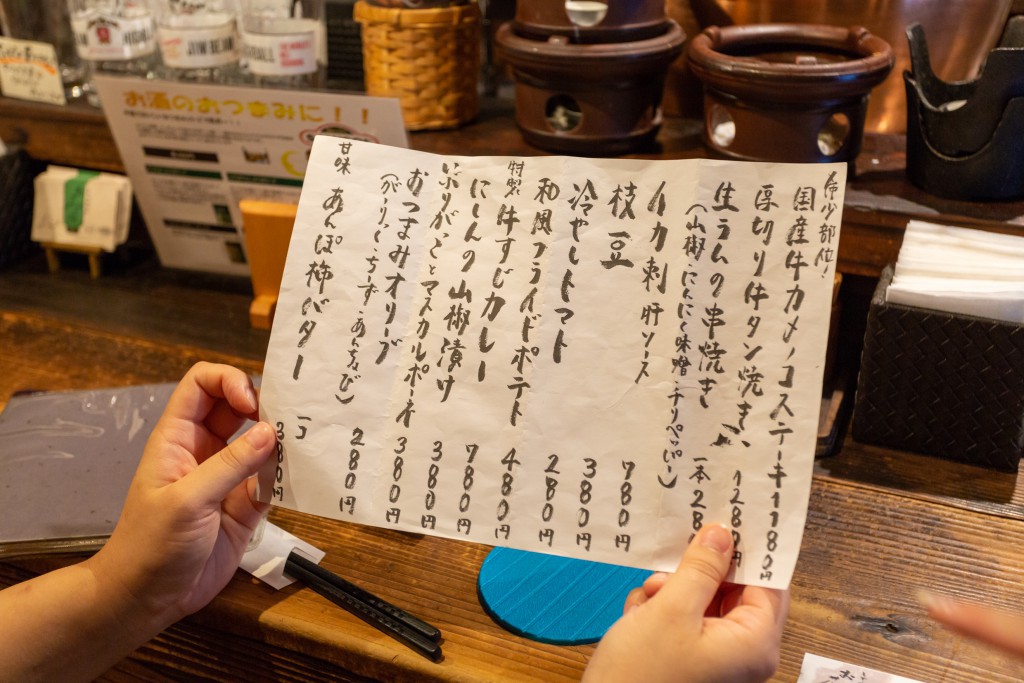 希少部位!
国産牛カメノコステーキ 1180円
厚切り牛タン焼き 1280円
生ラムの串焼き 一本 28
(山椒・にんにく味噌・チリペッパー)
イカ刺 肝ソース 780円
枝豆 380円
冷やしトマト 280円
和風フライドポテト 480円
特製 牛すじカレー 780円
にしんの山椒漬け 380円
いぶりがっことマスカルポーネ 380円
おつまみオリーブ 280円
(がーりっくちーず・あんちょび)
甘味 あんぽ柿バター 一コ 380円
お酒のおつまみに!!
JIM BEAM